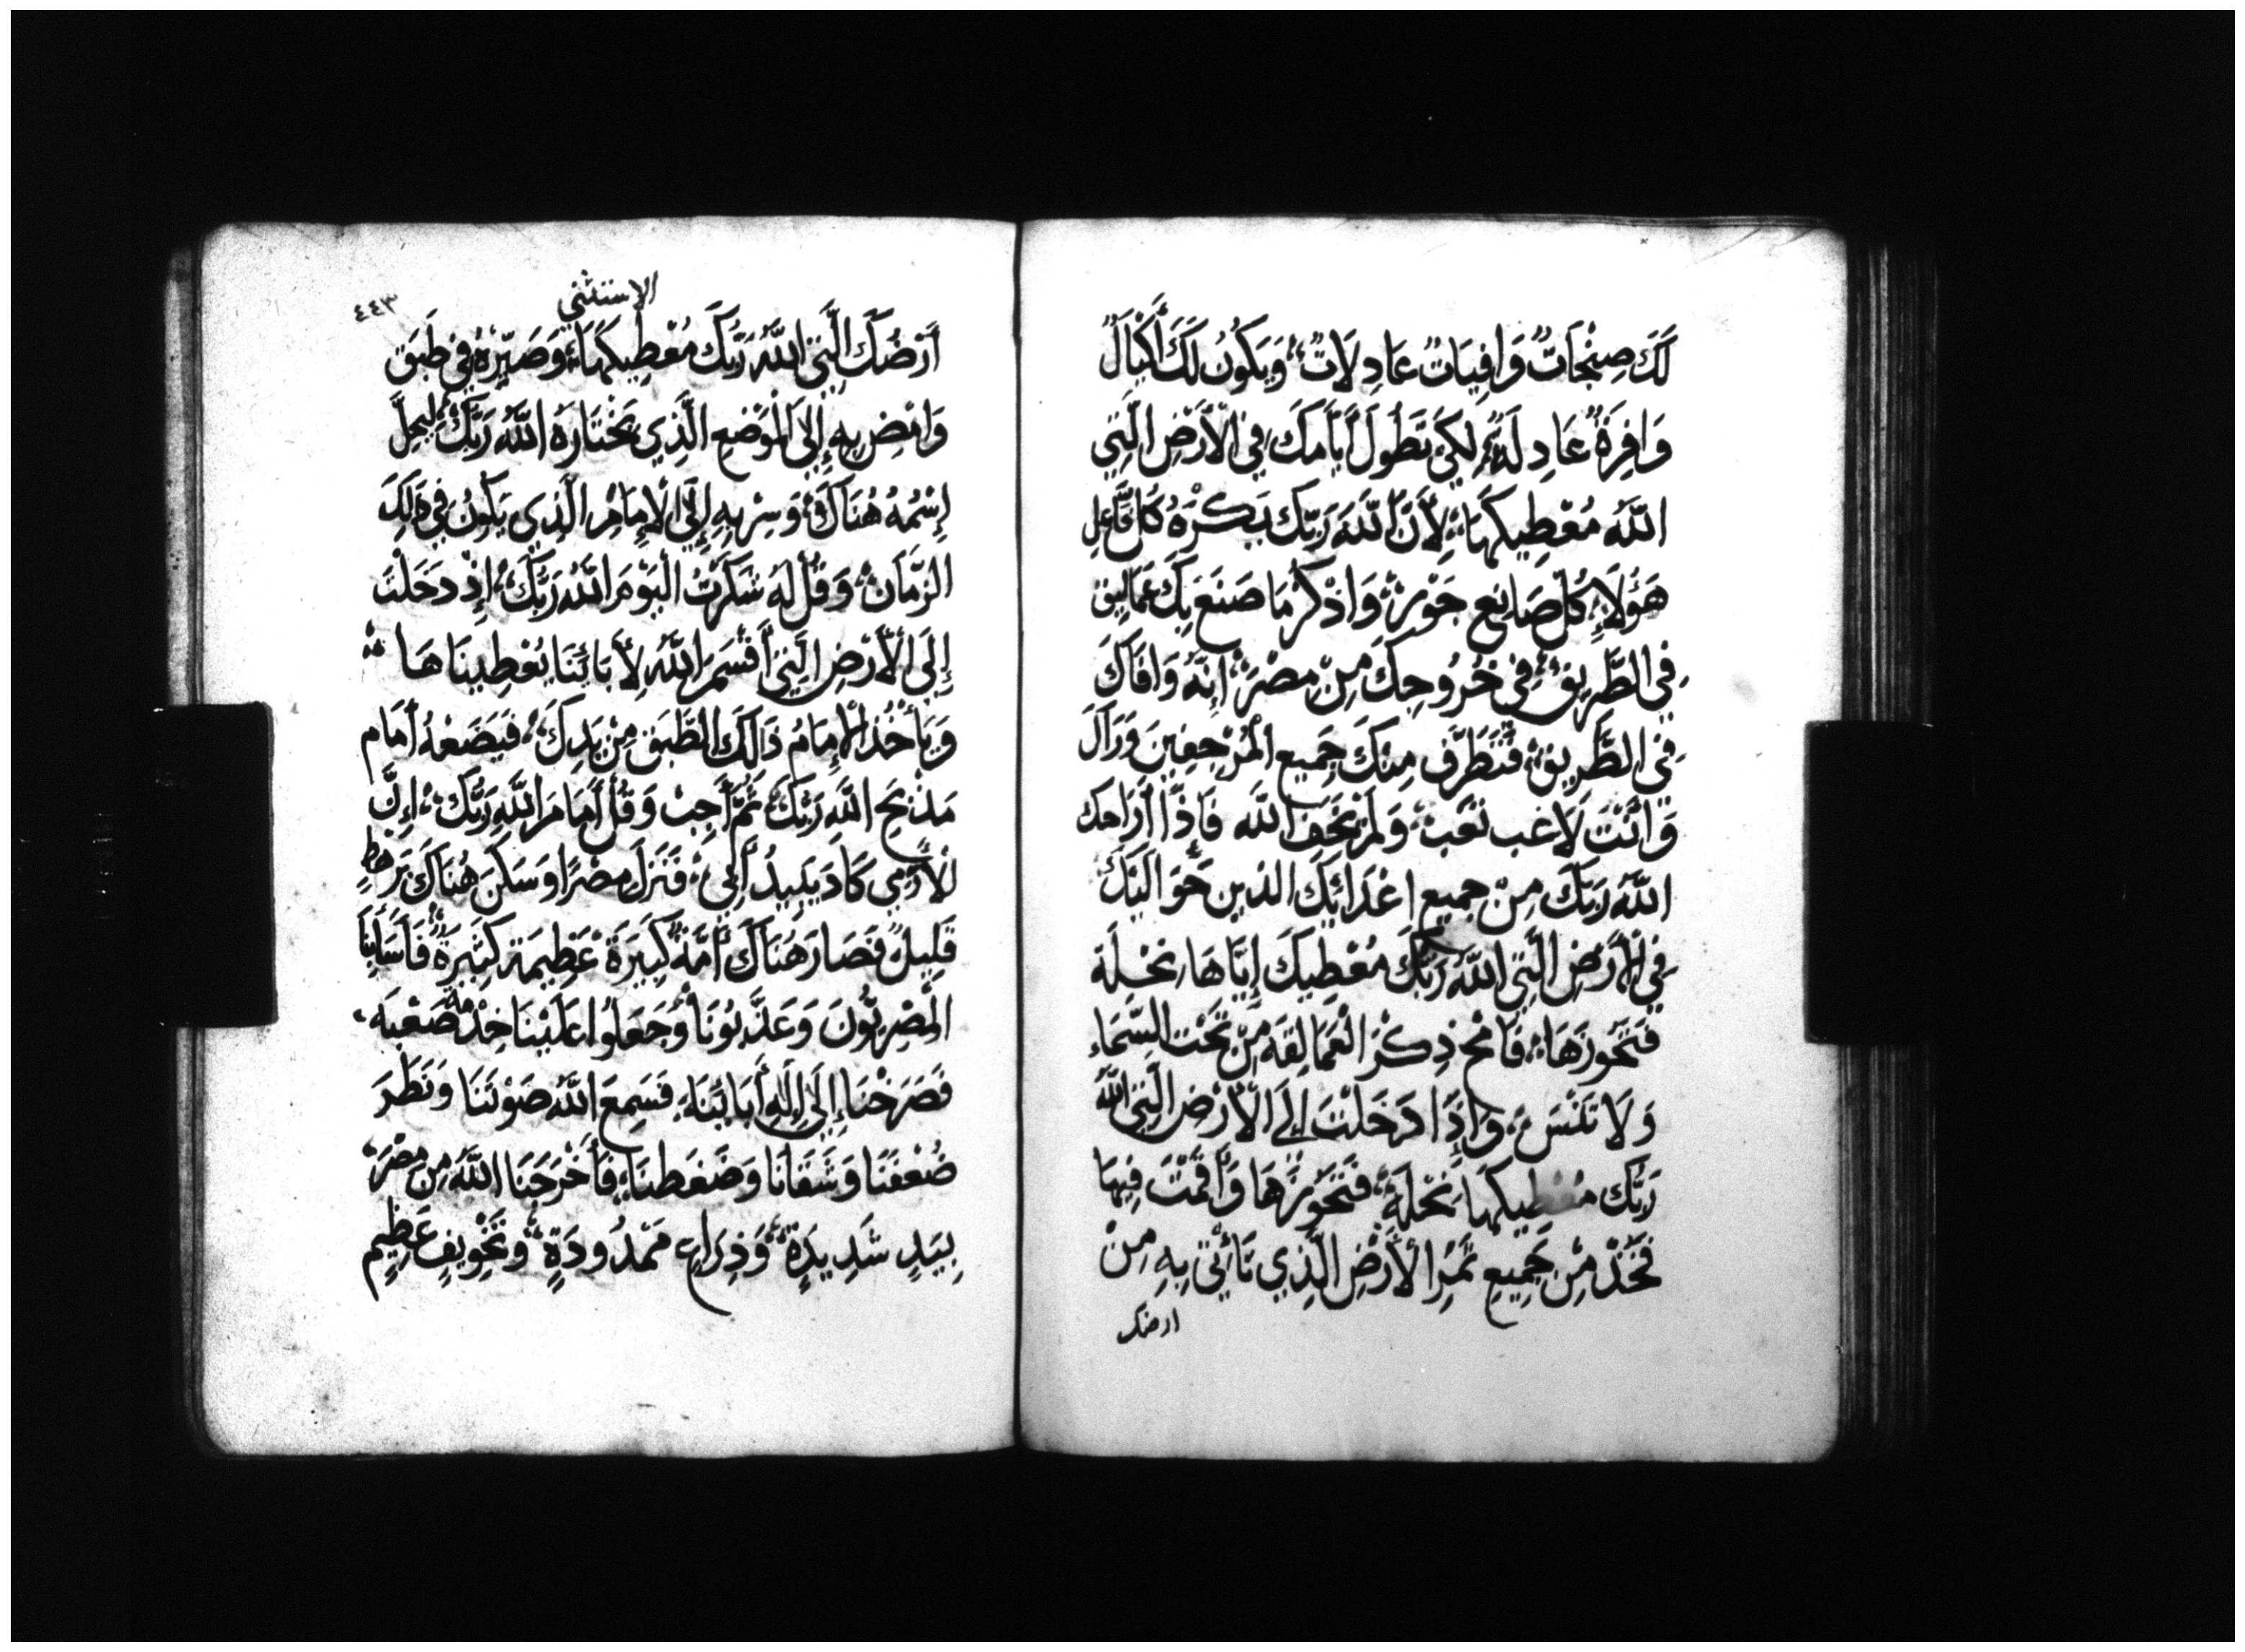 لَكَ صِنْجَاتٌ وَافِيَاتٌ عَادِلَاتٌ، وَيَكُونُ لَكَ أَكْيَالٌ
وَافِرَةٌ عَادِلَةٌ، لِكَيْ تَطُولَ أَيَّامَكَ فِي الْأَرْضِ الَّتِي
اللَّهُ مُعْطِيكَهَا، لِأَنَّ اللَّهَ رَبَّكَ يَكْرَهُ كُلَّ فَاعِلِ
هَؤُلَاءِ، كُلَّ صَانِعِ جَوْرٍ، وَاذْكُرْ مَا صَنَعَ بِكَ عَمَالِيق
فِي الطَّرِيقِ، فِي خُرُوجِكَ مِنْ مِصْرَ، إِنَّهُ وَافَاكَ
فِي الطَّرِيقِ، فَتَطَرَّفَ مِنْكَ جَمِيع الْمُرْجِفِينَ وَرَاكَ
وَأَنْتَ لَاغب تَعِب، وَلَمْ يَخَفِ اللَّهَ فَاذَا أَرَاحَك
اللَّهُ رَبّكَ مِنْ جميع اعْدَائِكَ الذين حَوَالَيْكَ
فِي الْأَرْضِ الَّتِي اللَّهُ رَبُّكَ مُعْطِيكَ إِيَّاهَا نِحْلَة
فَتَحُوزَهَا، فَامْحُ ذِكْرَ الْعَمَالِقَةِ مِنْ تَحْتِ السَّمَاءِ
وَلَا تَنْسَ، وَإِذَا دَخَلْتَ إِلَى الْأَرْضِ الَّتِي اللَّهُ
رَبُّكَ مُعْطِيكَهَا نِحْلَةً، فَتَحَوَّزْهَا وَأَقَمْتَ فِيهَا
فَخُذْ مِنْ جَمِيعِ ثَمَرِ الْأَرْضِ الَّذِي تَأْتِي بِهِ مِنْ
ارضك
الاستثني
٤٤٣
أَرْضُكَ الَّتِي اللَّهُ رَبُّكَ مُعْطِيكَهَا، وَصَيِّرْهُ فِي طَبَقٍ
وَامْضِ بِهِ إِلَى الْمَوْضِعِ الَّذِي يَخْتَارَهُ اللَّهُ رَبُّكَ، لِيَحِلَّ
إِسْمُهُ هُنَاكَ، وَسِرْ بِهِ إِلَى الْإِمَامِ الَّذِي يَكُونُ فِي ذَلِكَ
الزَّمَانِ، وَقُلْ لَهُ شَكَرْتُ الْيَوْمَ اللَّهُ رَبُّكَ، إِذْ دَخَلْتَ
إِلَى الْأَرْضِ الَّتِي أَقْسَمَ اللَّهُ لِأَبَائِنَا يُعْطِينَاهَا
وَيَأْخُذُ الْإِمَامُ ذَالِكَ الطَّبَق مِنْ يَدِكَ، فَيَضَعْهُ أَمَام
مَذْبَحِ اللَّهِ رَبِّكَ، ثُمَّ أَجِبْ وَقُلْ أَمَامَ اللَّهِ رَبِّكَ، إِنَّ
الْأَرَمِي كَادَ يَبِيدُ أَبِي، فَنَزَلَ مِصْرًا وَسَكَنَ هُنَاكَ بَرَهْطٍ
قَلِيلٍ فَصَارَ هُنَاكَ أُمَّةً كَبِيَرَةً عَظِيمَة كَثِيرَةً، فَأَسَأَبِنَا
الْمِصْرِيُّونَ وَعَذَّبُونَا وَجَعَلُوا عَلَيْنَا خِدْمَة صَعْبَة،
فَصَرَخْنَا إِلَى إِلَهِ أَبَائِنَا، فَسَمِعَ اللَّهُ صَوْتَنَا وَنَظَرَ
ضُعْفَنَا وَشَقَانَا وَضَغَطنَا، فَأَخْرَجَنَا اللَّهُ مِنْ مِصْرَ،
بِيَدٍ شَدِيدَةٍ، وَذِرَاعٍ مَمْدُودَةٍ، وَتَخْوِيفٍ عَظِيمٍ